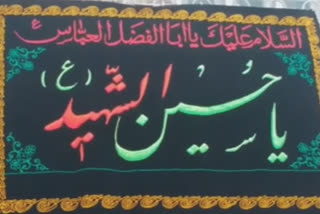 السلام عليك يا ابا الفضل العباس ع
يا حسين الشهيد (ع)